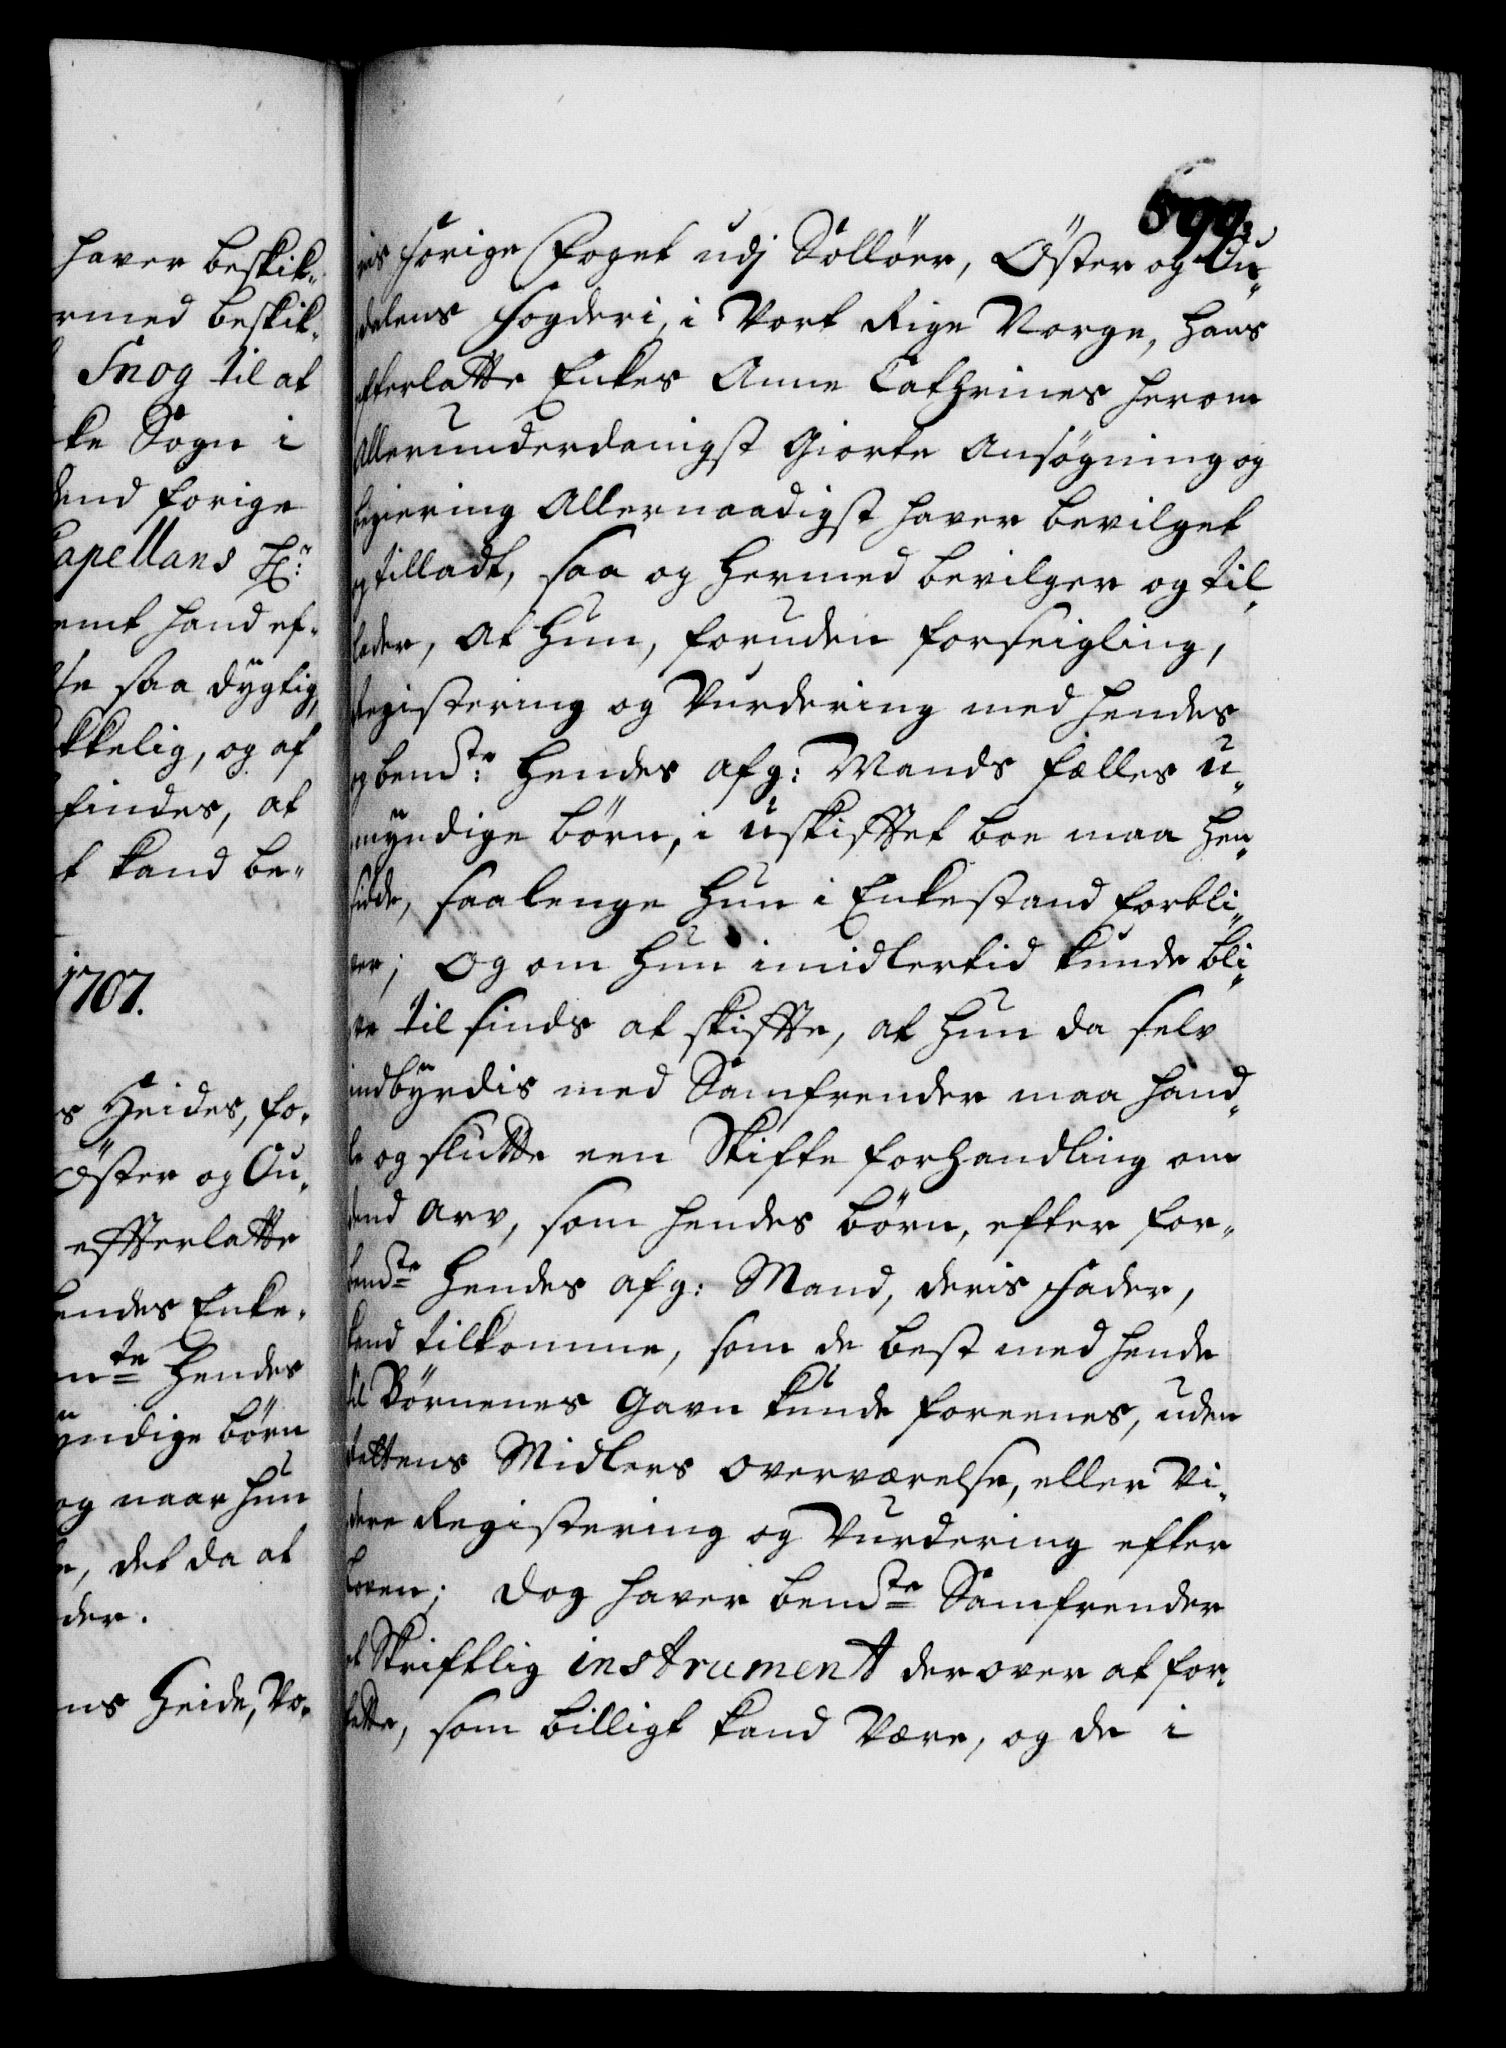 haver beskik-
rmed beskik-
Snog til at
ke Sogn i
dend forige
Capellans Hr:
emt hand ef-
se saa dygtig,
kkelig, og af
findes, at
t kand be-
1707.
s Heides, fo-
Öster og Ou-
efterlatte
hendes Enke-
nte Hendes
yndige börn
og naar hun
e, det da at
der.
ns Heide, Vo-
599.
ris forige Foget udj Sollöer, Öster og Ou-
dalens fogderi, i Vort Rige Norge, hans
efterlatte Enkes Anne Cathrines herom
Allerunderdanigst Giorte Ansögning og
begiering Allernaadigst haver bevilget
og tilladt, saa og hermed bevilger og til-
lader, at hun, foruden forseigling,
Registering og Vurdering med hendes
og bemte: hendes afg: Mands fælles u-
myndige börn, i uskifftet boe maa hen-
sidde, saalenge hun i Enkestand forbli-
ver; Og om hun imidlertid kunde bli-
ve til sinds at skiffte, at hun da selv
indbyrdis med Samfrender maa hand-
le og slutte een Skifte forhandling om
dend arv, som hendes börn, efter for-
bemte hendes afg: Mand, deris fader,
kand tilkomme, som de best med hende
til Börnenes Gavn kunde foreenes, uden
Rettens Midlers overværelse, eller Vi-
dere Registering og Vurdering efter
Loven; dog haver bemte Samfrender
et Skriftlig instrument derover at for-
fatte, som billigt kand være, og de i